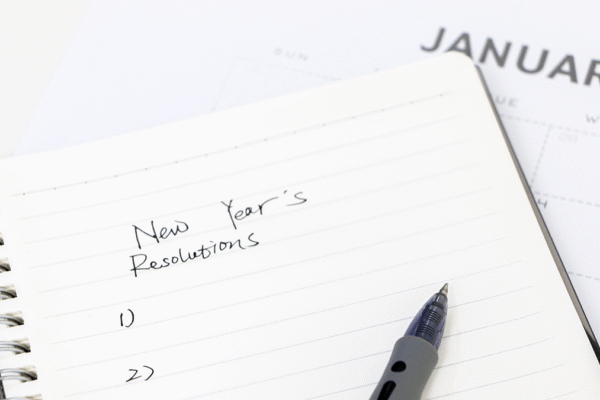 JANUAR
SUN
UE
W
H
New Year's
Resolutions
1)
2)